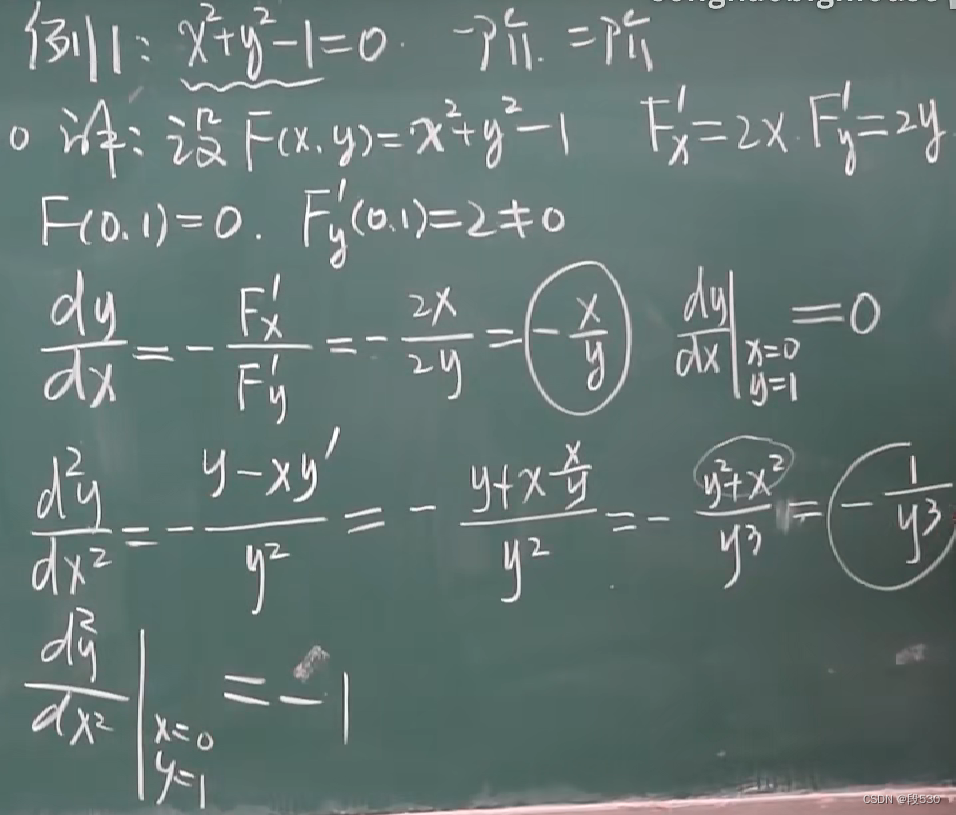 例1: x²+y²-1=0. 一阶. 二阶
证: 设 F(x,y)=x²+y²-1 F'x=2x. F'y=2y
F(0,1)=0. F'y(0,1)=2≠0
dy/dx = - F'x/F'y = - 2x/2y = - x/y dy/dx | x=0 y=1 =0
d²y/dx² = - (y-xy')/y² = - (y+x x/y)/y² = - (y²+x²)/y³ = - 1/y³
d²y/dx² | x=0 y=1 = -1
CSDN @段530